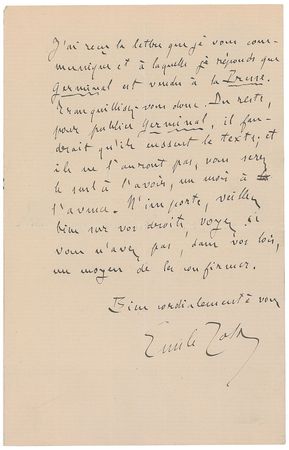 J'ai reçu la lettre que je vous com-
munique et à laquelle je réponds que
Germinal est vendu à la Presse.
Tranquillisez-vous donc. Du reste,
pour publier Germinal, il fau-
drait qu'ils eussent le texte, et
ils ne l'auront pas, vous serez
le seul à l'avoir, un mois à
l'avance. N'importe, veillez
bien sur vos droits, voyez si
vous n'avez pas, dans vos lois,
un moyen de les confirmer.
Bien cordialement à vous
Emile Zola